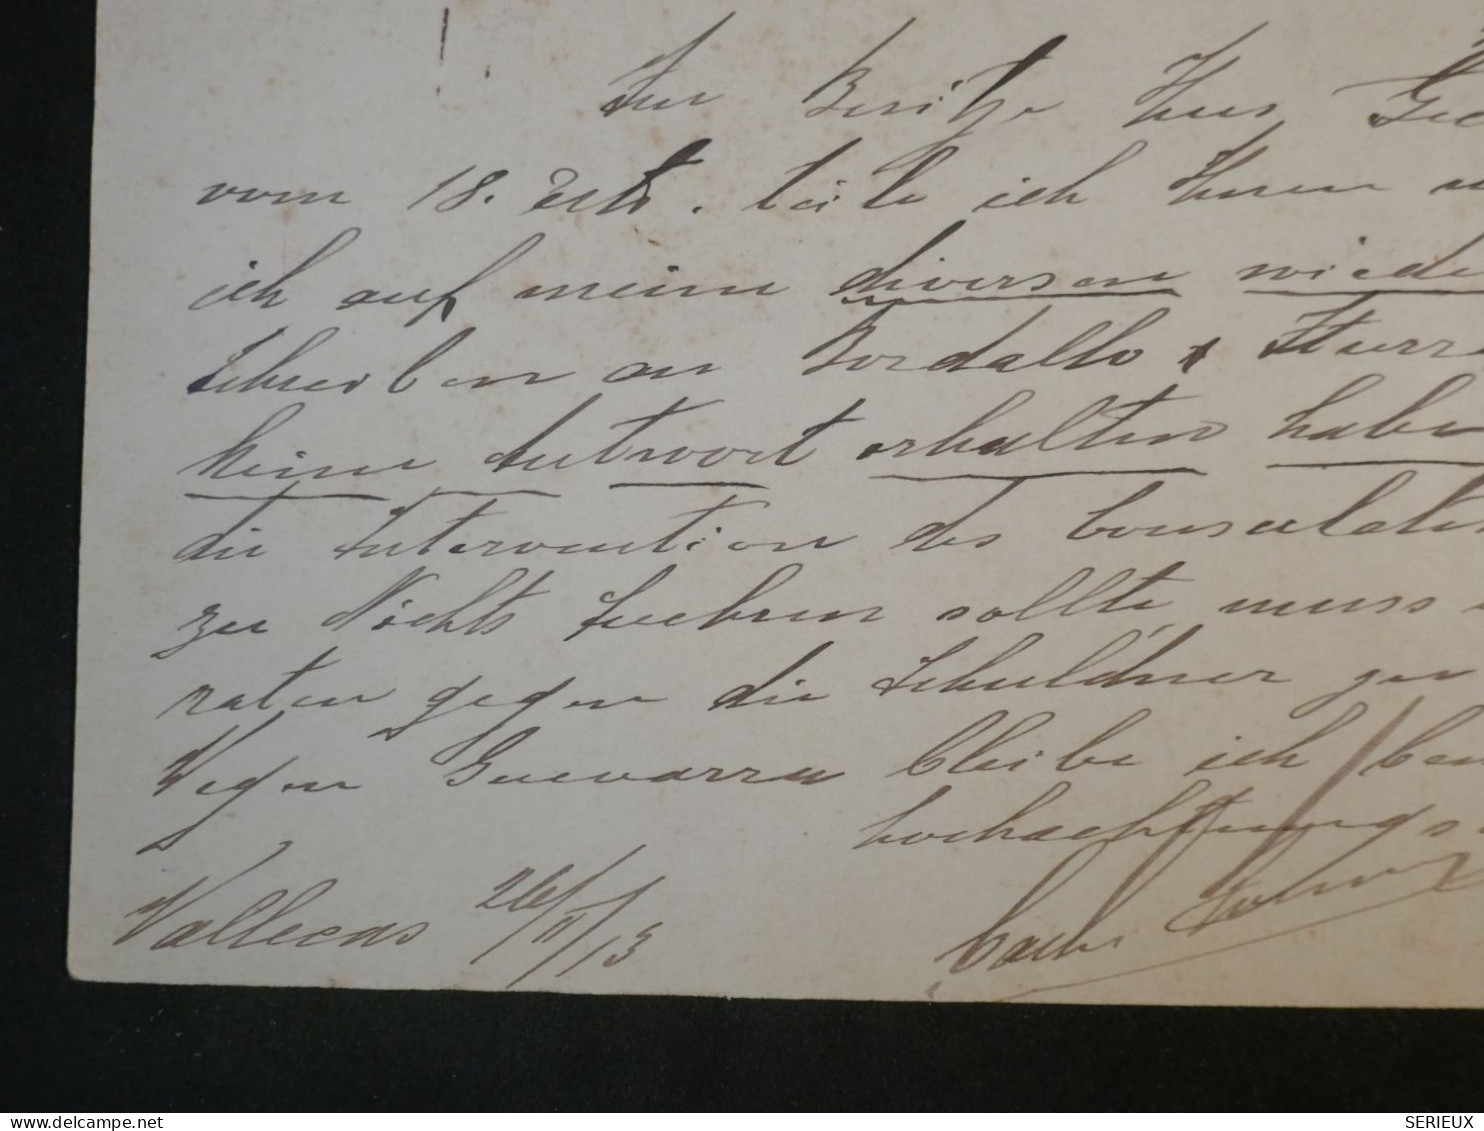 Im Besitze Ihres Ge
vom 18. teile ich Ihnen
ich auf meine diversen wiede
Schreiben an Bordallo & Iturr
keine Antwort erhalten habe
die Intervention des Consulate
zu Nichts fuehren sollte, muss
raten gegen die Schuldner zu
Wegen Guevarra bleibe ich
hochachtungs
Vallecas 26/II/13
SERIEUX